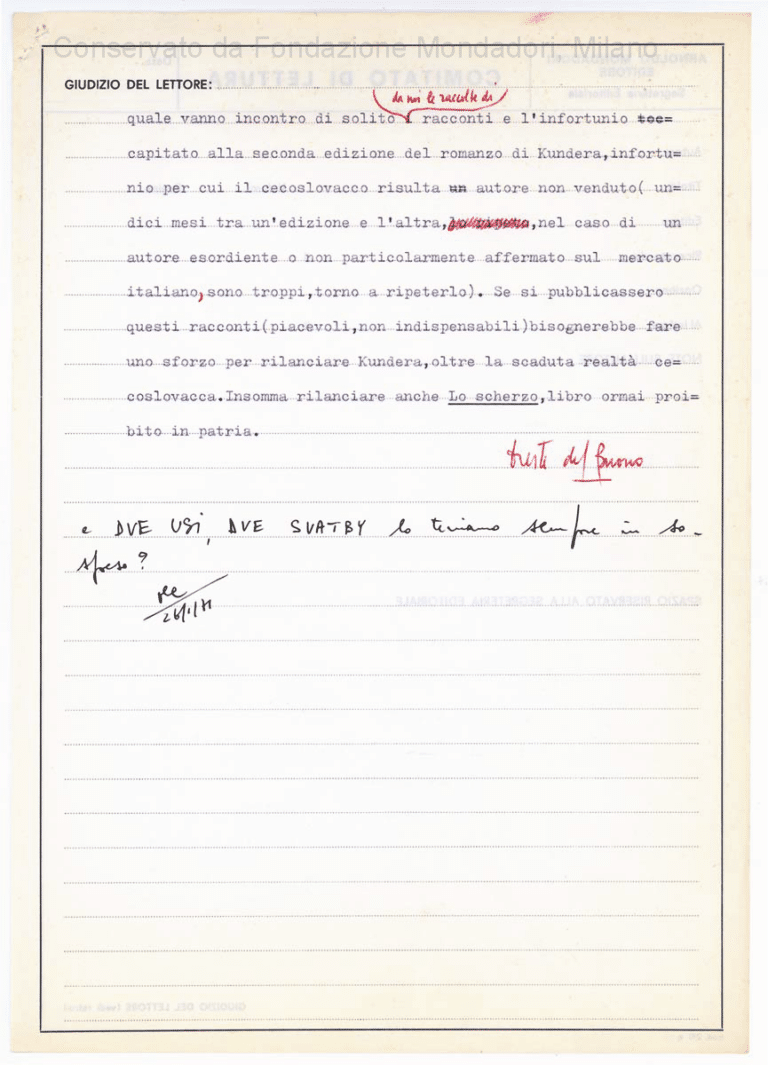 Conservato da Fondazione Mondadori, Milano
GIUDIZIO DEL LETTORE:
da noi le raccolte di
quale vanno incontro di solito i racconti e l'infortunio toc=
capitato alla seconda edizione del romanzo di Kundera,infortu=
nio per cui il cecoslovacco risulta un autore non venduto( un=
dici mesi tra un'edizione e l'altra, ,nel caso di un
autore esordiente o non particolarmente affermato sul mercato
italiano,sono troppi,torno a ripeterlo). Se si pubblicassero
questi racconti(piacevoli,non indispensabili)bisognerebbe fare
uno sforzo per rilanciare Kundera,oltre la scaduta realtà ce=
coslovacca.Insomma rilanciare anche Lo scherzo,libro ormai proi=
bito in patria.
oreste del Buono
e DVE USI, DVE SVATBY lo teniamo sempre in so-
speso?
26/1/71
SPAZIO RISERVATO ALLA SEGRETERIA EDITORIALE
GIUDIZIO DEL LETTORE (vedi retro)